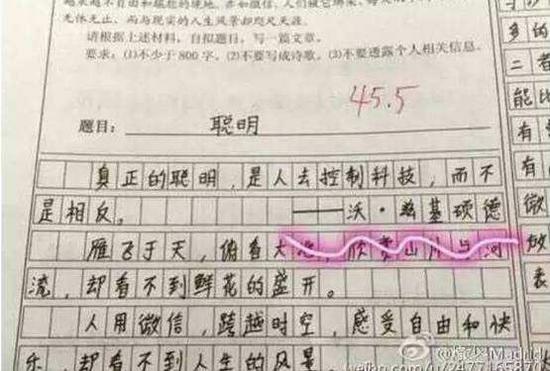 越来越不自由和尴尬的境地。亦如微信,人们被它绑架,
无休无止,而与现实的人生风景却咫尺天涯。
请根据上述材料,自拟题目,写一篇文章。
要求:(1)不少于800字。(2)不要写成诗歌。(3)不要透露个人相关信息。
45.5
题目: 聪明
真正的聪明,是人去控制科技,而不
是相反。 ——沃·兹基硕德
雁飞于天,俯看大地,欣赏山川与河
流,却看不到鲜花的盛开。
人用微信,跨越时空,感受自由和快
乐,却看不到人生的风景。
多的
二者
能比
有
有
微
放
表
weibo.com/u/2477165870